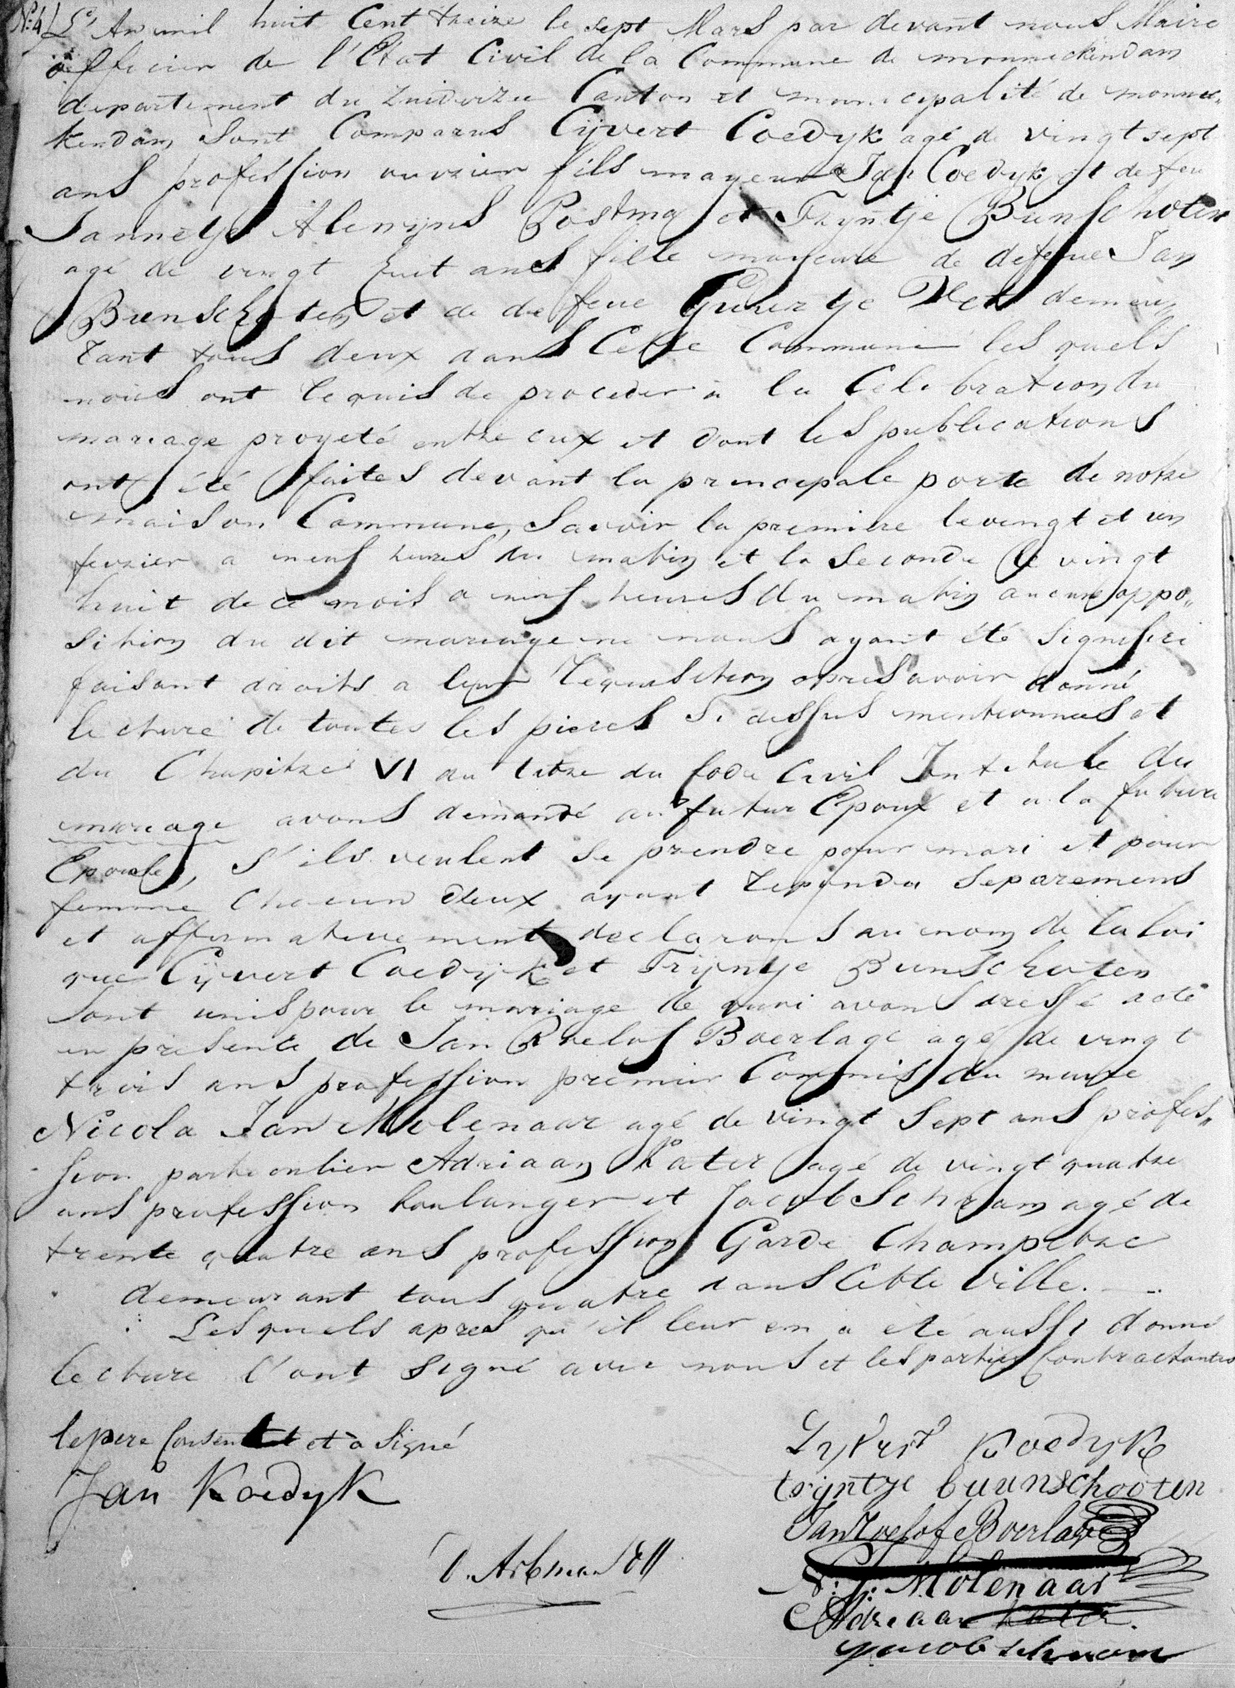 N: 4 L'An mil huit Cent treize le sept Mars par devant nous Maire
officier de l'Etat Civil de la Commune de monnickendam
departement du Zuiderzee Canton et municipalité de monnic„
kendam, sont Comparus Cijvert Coedijk agé de vingt sept
ans profession ouvrier fils mayeur de Jan Coedijk et de feu
Jannetje Alewyns Postma et Tryntje Bunschoten
agé de vingt huit ans fille mayeure de defeue Jan
Bunschoten et de defeue Guurtje demeu„
rant tous deux dans Cette Commune lesquels
nous ont requis de proceder a la Celebration du
mariage proyeté entre eux et dont les publications
ont été faites devant la principale porte de notre
maison Commune, Savoir la premiere le vingt et un
fevrier a neuf heures du matin et la seconde le vingt
huit de ce mois a neuf heures du matin aucune oppo„
sition du dit mariage ne nous ayant été signifié
faisant droits a leur requisition apres avoir donné
lecture de toutes les pieces si dessus mentionnees et
du Chapitre VI du titre du Code Civil Intitule du
mariage avons demandé au futur Epoux et a la future
Epouse, s'ils veulent se prendre pour mari et pour
femme Chacun deux ayant repondu separemens
et affirmativement declarons au nom de la loi
que Cijvert Coedijk et Trijntje Bunschoten
sont unis pour le mariage de quoi avons dressé acte
en presence de Jan Roelof Boerlage agé de vingt
trois ans profession premier Commis du maire
Nicola Jan Molenaar agé de vingt sept ans profes„
sion particulier Adriaan Kater agé de vingt quatre
ans profession boulanger et Jacob Schraam agé de
trente quatre ans profession Garde Champetre
demeurant tous quatre dans Cette Ville.
Lesquels apres qu'il leur en a été aussi donné
lecture l'ont signé avec nous et les parties Contractantes
le pere Consentent et a Signé
Jan Koedyk
Koedyk
trijntje buunschooten
Jan Roelof Boerlage
N: J: Molenaar
Adriaan Kater.
Jacob schraam